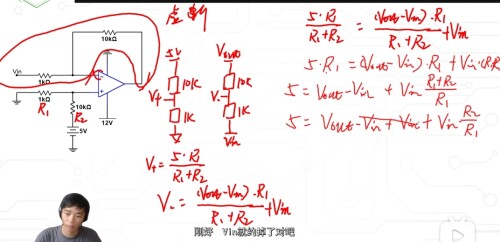 虚断
10kΩ
Vin
1kΩ
1kΩ
R₁
10kΩ
R₂
5V
12V
5V
10K
V+
1K
Vout
10K
V-
1K
Vin
V+ = 5·R₁/(R₁+R₂)
V- = (Vout-Vin)·R₁/(R₁+R₂) + Vin
5·R₁/(R₁+R₂) = (Vout-Vin)·R₁/(R₁+R₂) + Vin
5·R₁ = (Vout-Vin)·R₁ + Vin·(R₁+R₂)
5 = Vout-Vin + Vin (R₁+R₂)/R₁
5 = Vout-Vin + Vin + Vin R₂/R₁
刚好 Vin就约掉了对吧